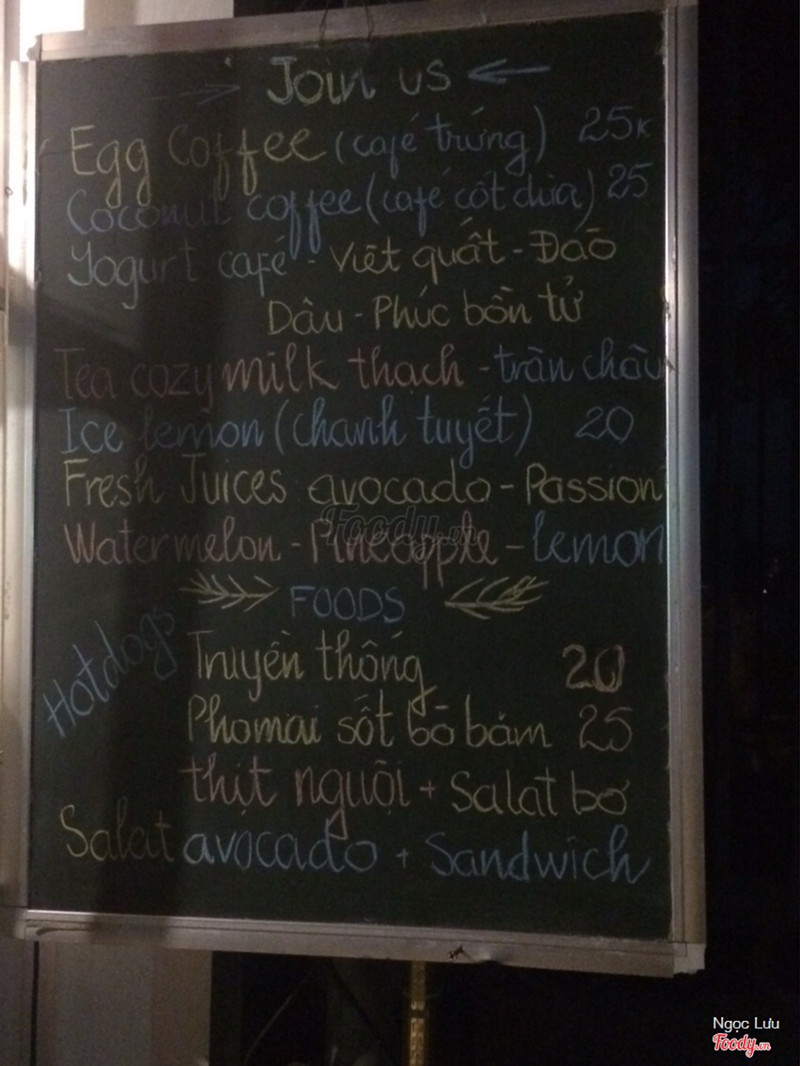 Join us
Egg Coffee (café trứng) 25k
Coconut coffee (café cốt dừa) 25
Yogurt café - Việt quất - Đào
Dâu - Phúc bồn tử
Tea cozy milk thạch - trân châu
Ice lemon (chanh tuyết) 20
Fresh Juices avocado - Passion
Watermelon - Pineapple - lemon
Foody.vn
FOODS
Hotdogs
Truyền thống 20
Phomai sốt bò băm 25
thịt nguội + Salat bơ
Salat avocado + Sandwich
Ngọc Lưu
Foody.vn